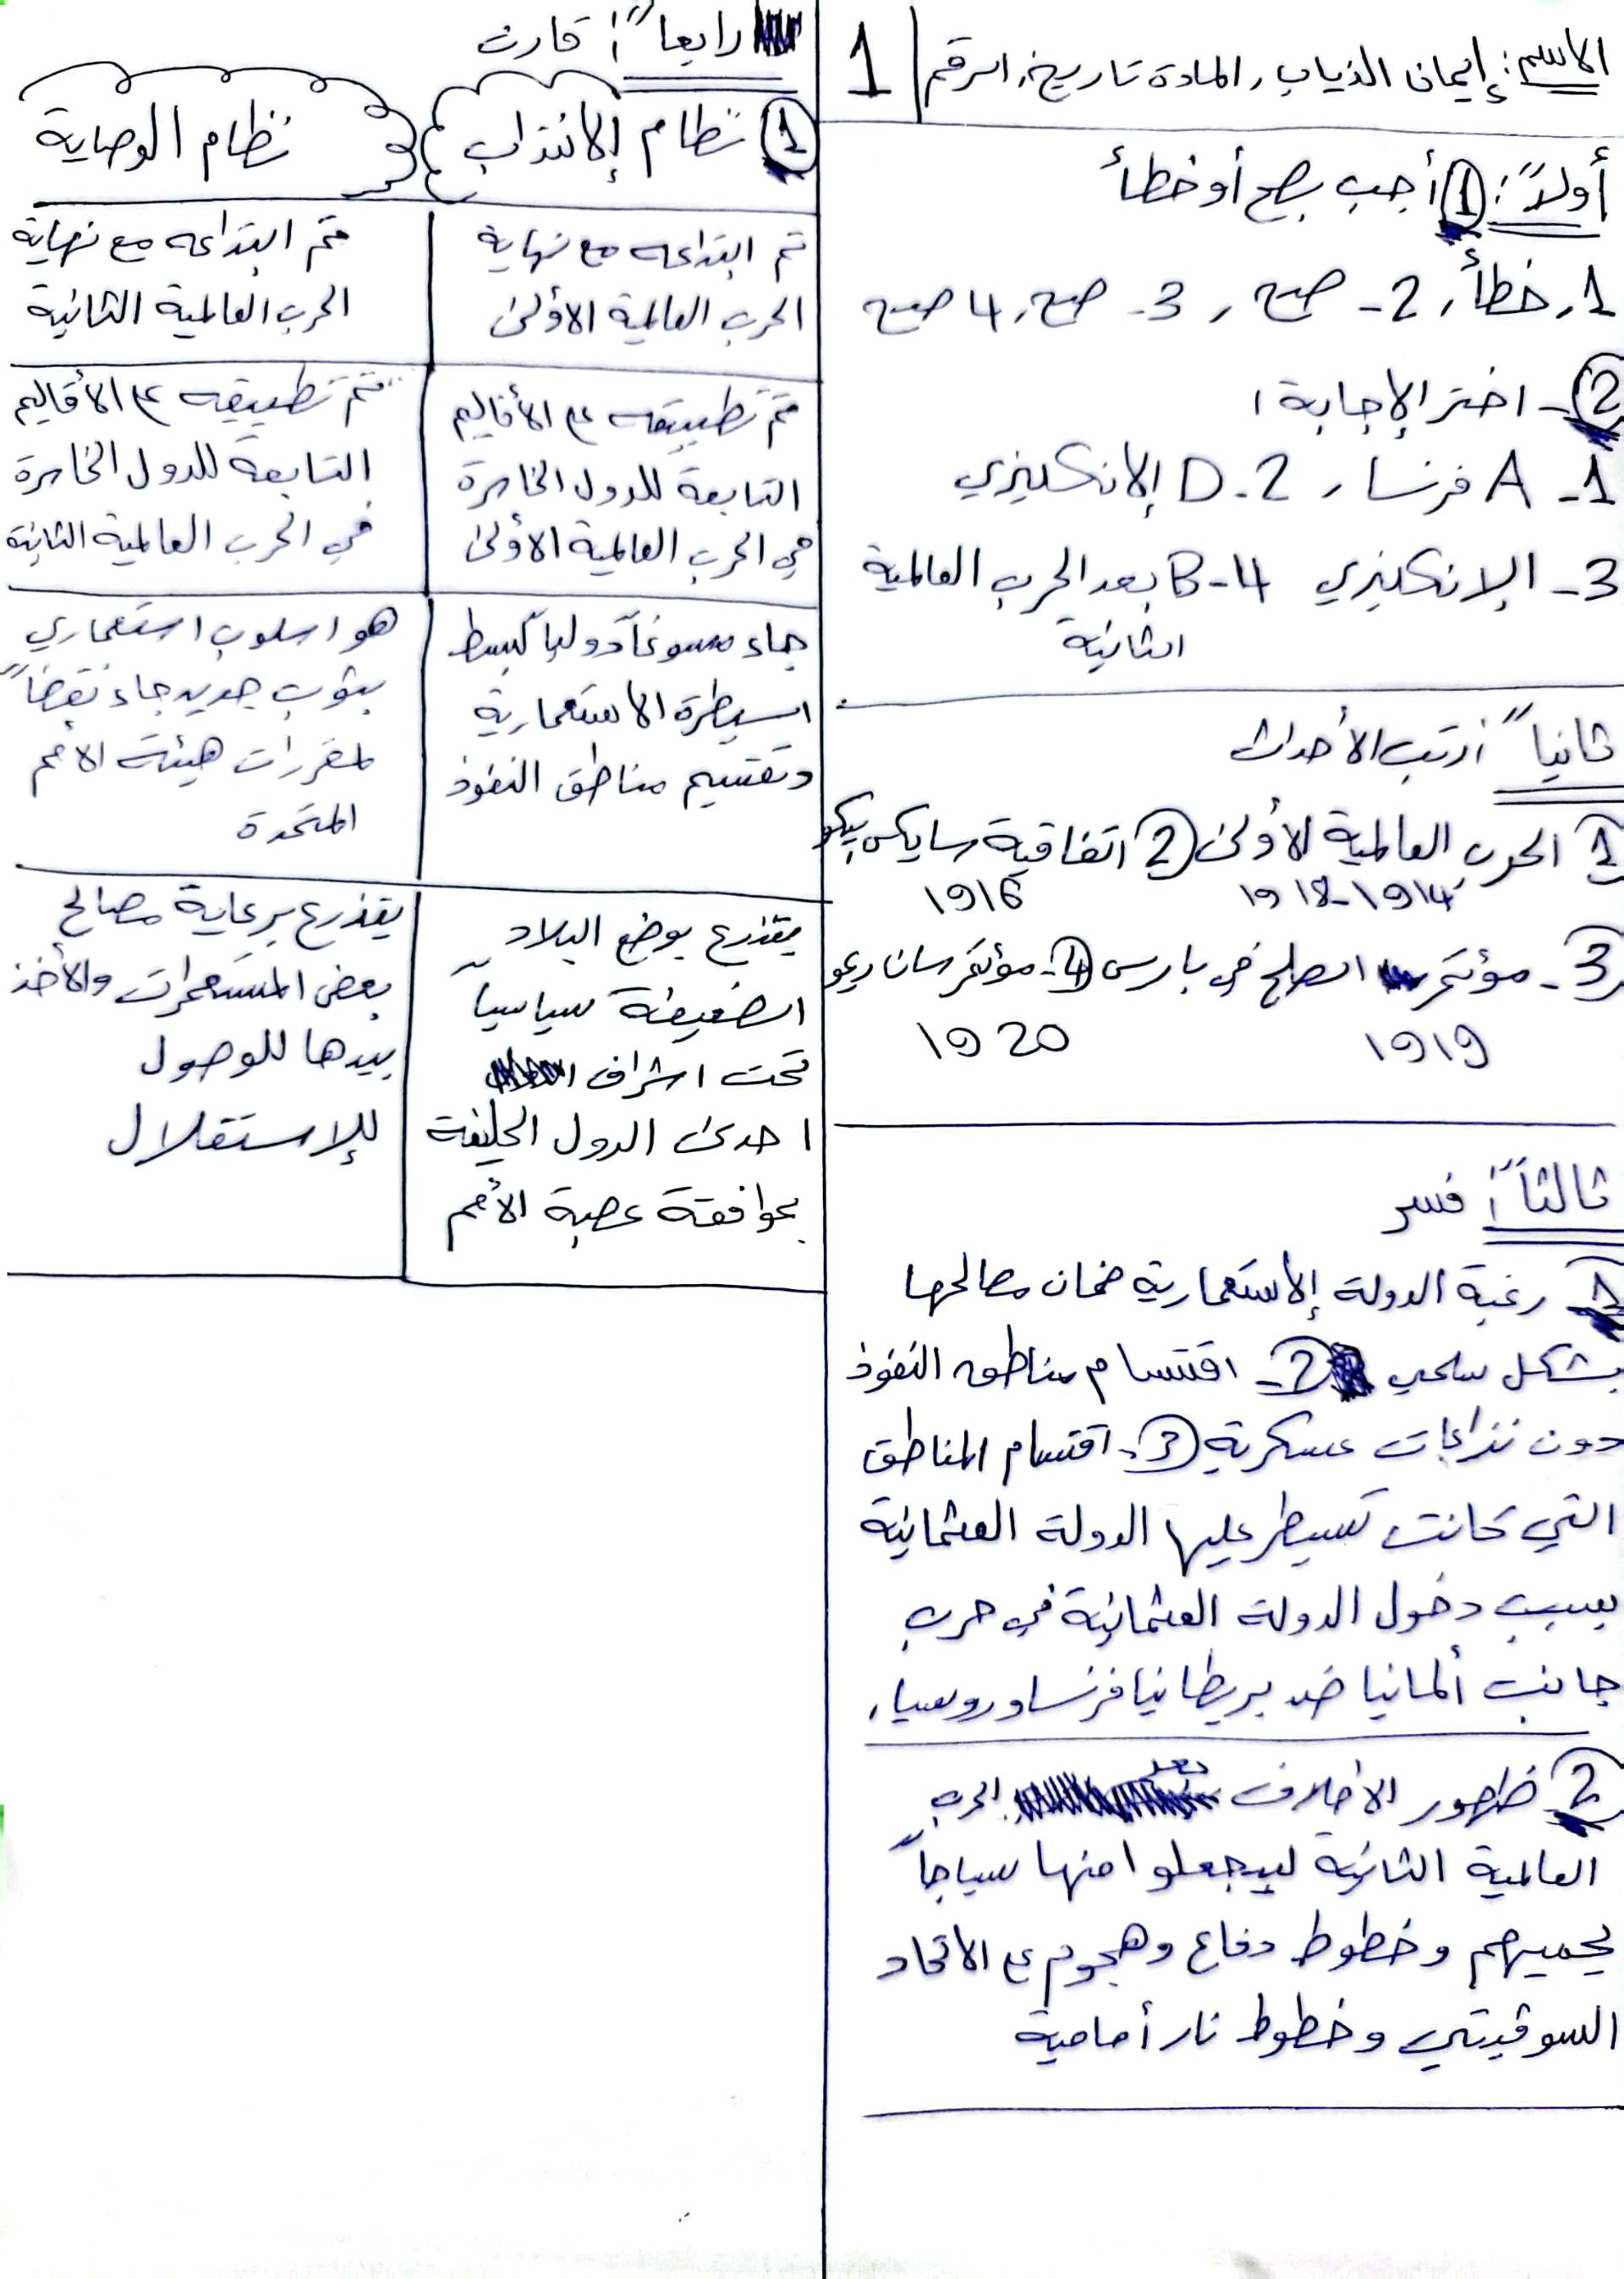 الاسم: إيمان الذياب, المادة تاريخ, الرقم 1
أولاً: 1 أجب بصح أو خطأ
1, خطأ, 2- صح, 3- صح, 4 صح
2- اختر الإجابة:
1- A فرنسا, 2- D الإنكليزي
3- الإنكليزي 4- B بعد الحرب العالمية
الثانية
ثانياً: أرتب الأحداث
1 الحرب العالمية الأولى 2 اتفاقية سايكس بيكو
1914-1918 1916
3- مؤتمر الصلح في بارس 4- مؤتمر سان ريمو
1919 1920
ثالثاً: فسر
1 رغبة الدولة الإستعمارية ضمان مصالحها
بشكل سلمي 2- اقتسام مناطق النفوذ
دون نزاعات عسكرية 3- اقتسام المناطق
التي كانت تسيطر عليها الدولة العثمانية
بسبب دخول الدولة العثمانية في حرب
جانب ألمانيا ضد بريطانيا فرنسا وروسيا.
2 ظهور الأحلاف بعد الحرب
العالمية الثانية ليجعلوا منها سياجاً
يحميهم وخطوط دفاع وهجوم ع الاتحاد
السوفيتي وخطوط نار أمامية
رابعاً: قارن
1 نظام الإنتداب نظام الوصاية
تم ابتداعه مع نهاية
الحرب العالمية الأولى
تم ابتداعه مع نهاية
الحرب العالمية الثانية
تم تطبيقه ع الأقاليم
التابعة للدول الخاسرة
في الحرب العالمية الأولى
تم تطبيقه ع الأقاليم
التابعة للدول الخاسرة
في الحرب العالمية الثانية
جاء مسوغاً دولياً لبسط
السيطرة الاستعمارية
وتقسيم مناطق النفوذ
هو اسلوب استعماري
بثوب جديد جاء نقضاً
لمقررات هيئة الأمم
المتحدة
يتذرع بوضع البلاد
الضعيفة سياسياً
تحت اشراف
احدى الدول الحليفة
بموافقة عصبة الأمم
يتذرع برعاية مصالح
بعض المستعمرات والأخذ
بيدها للوصول
للإستقلال